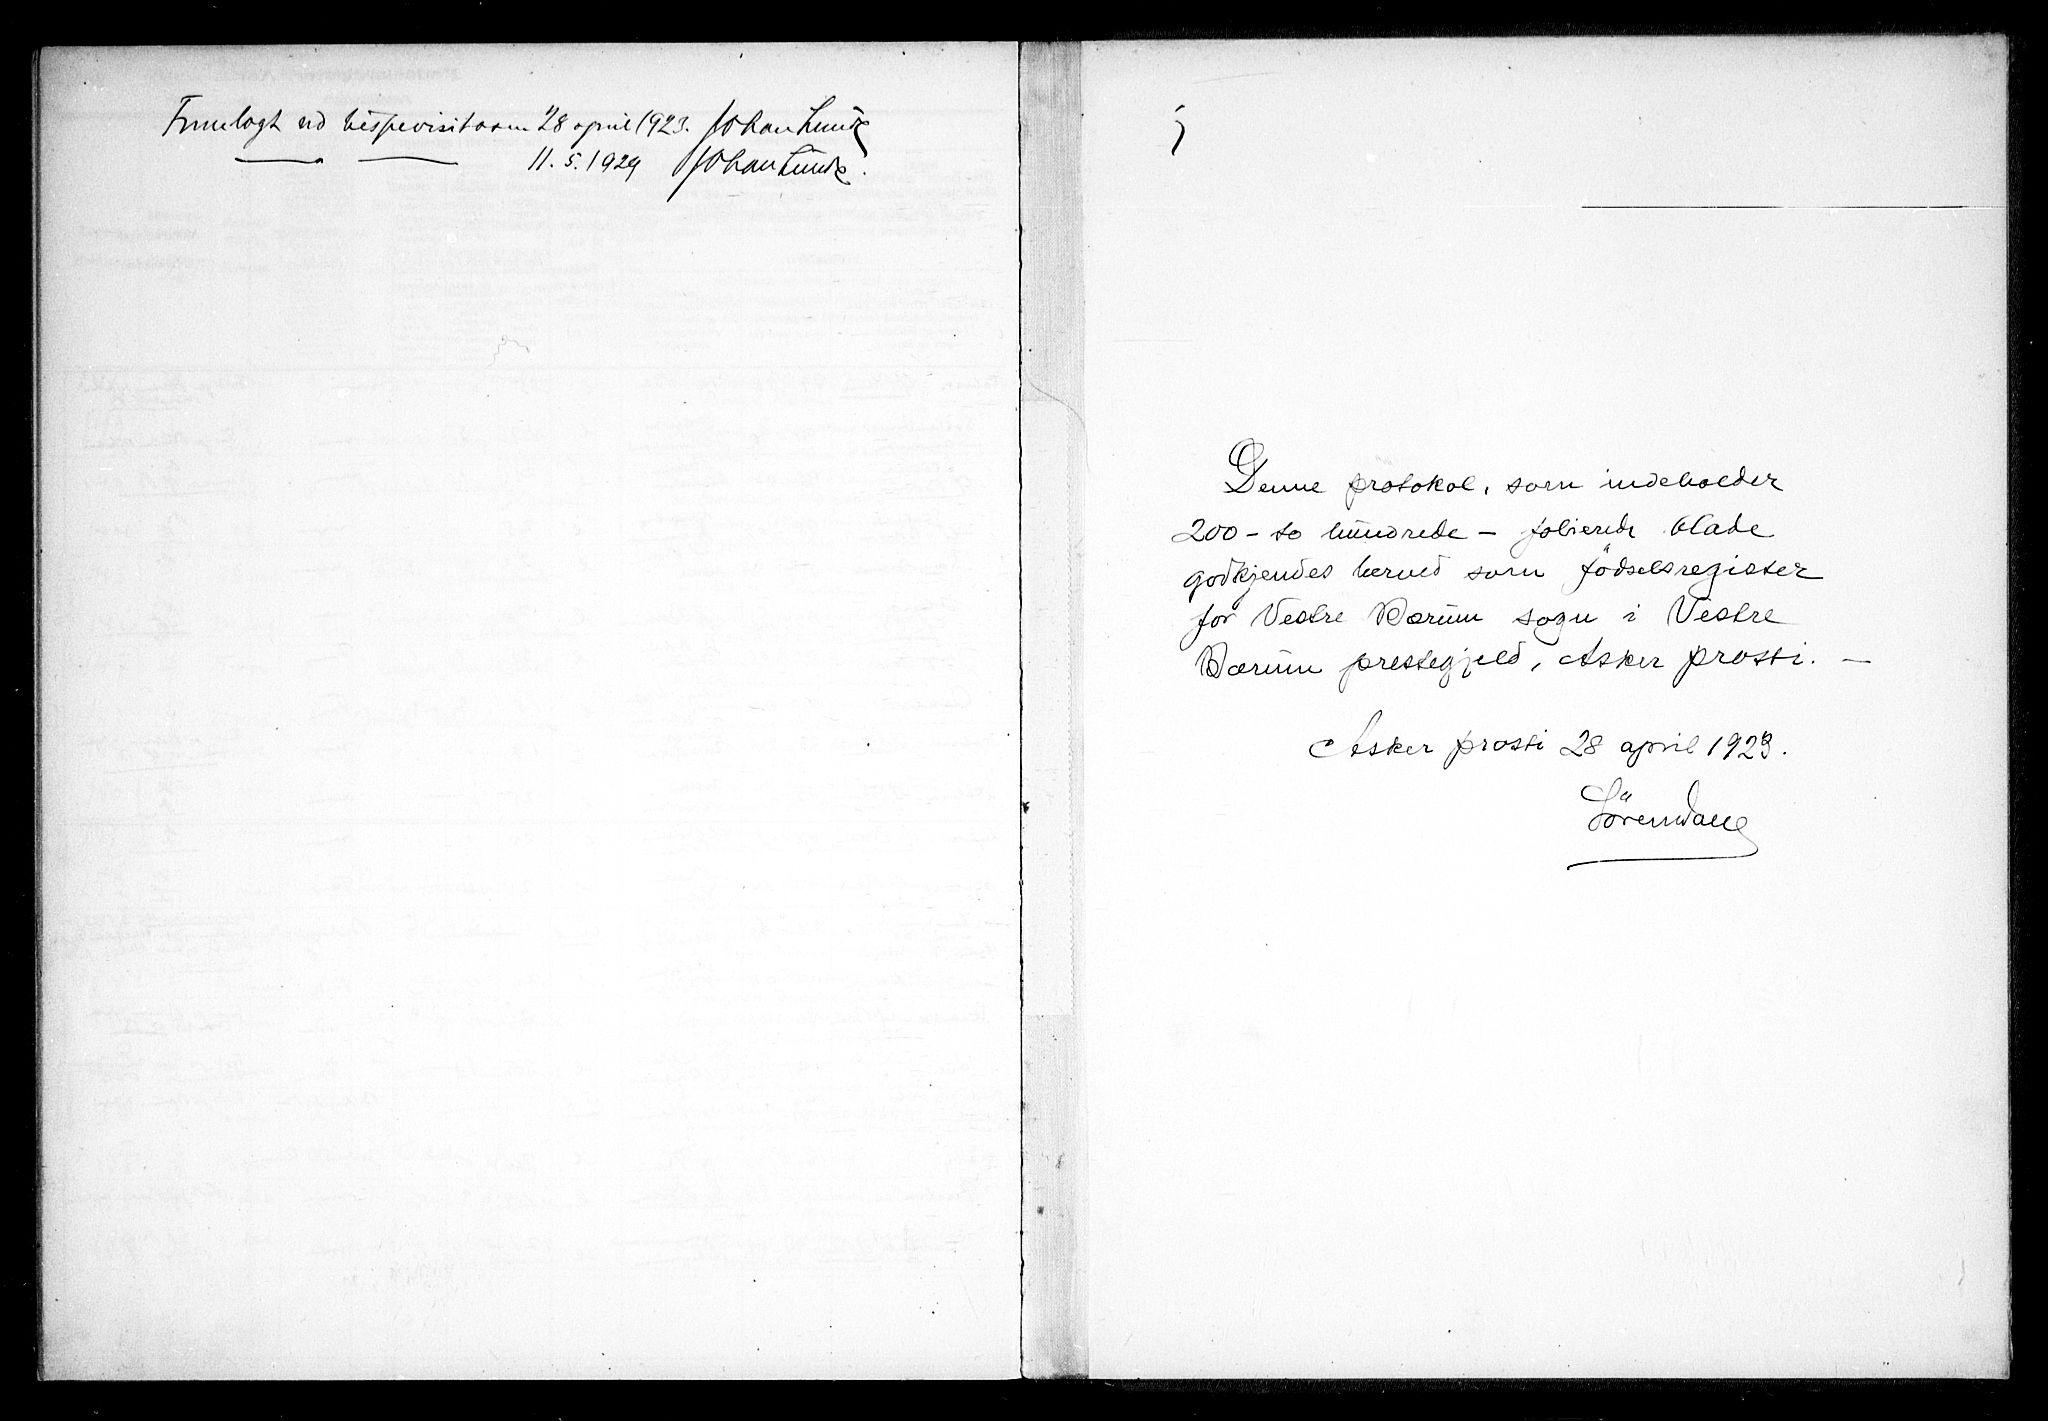 Fremlagt ved bispevisitasen 28 april 1923. Johan Lunde
11.5.1929 Johan Lunde.
Denne protokol, som indeholder
200 – to hundrede – folierede blade
godkjendes herved som fødselsregister
for Vestre Bærum sogn i Vestre
Bærum prestegjeld, Asker prosti. –
Asker prosti 28 april 1923.